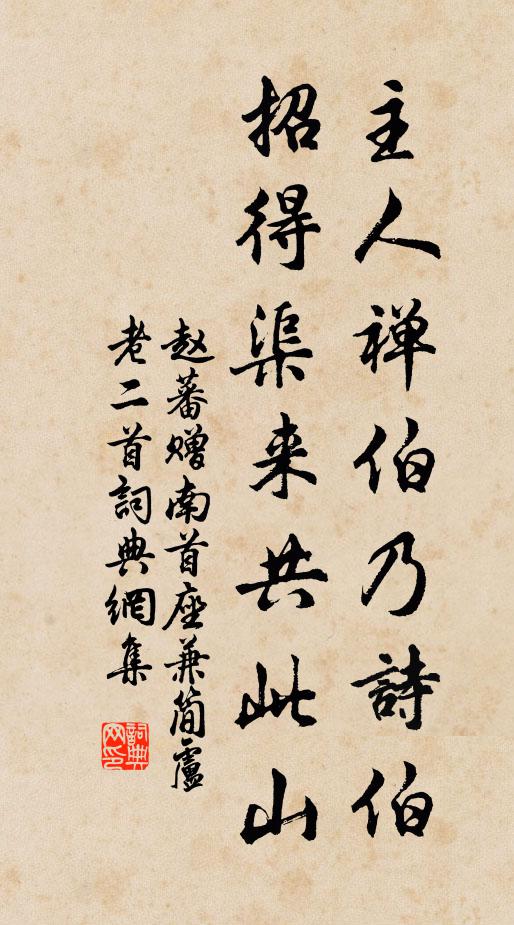 主人禅伯乃詩伯
招得渠来共此山
赵蕃赠南首座兼简盧
老二首詞典網集
詞典网印